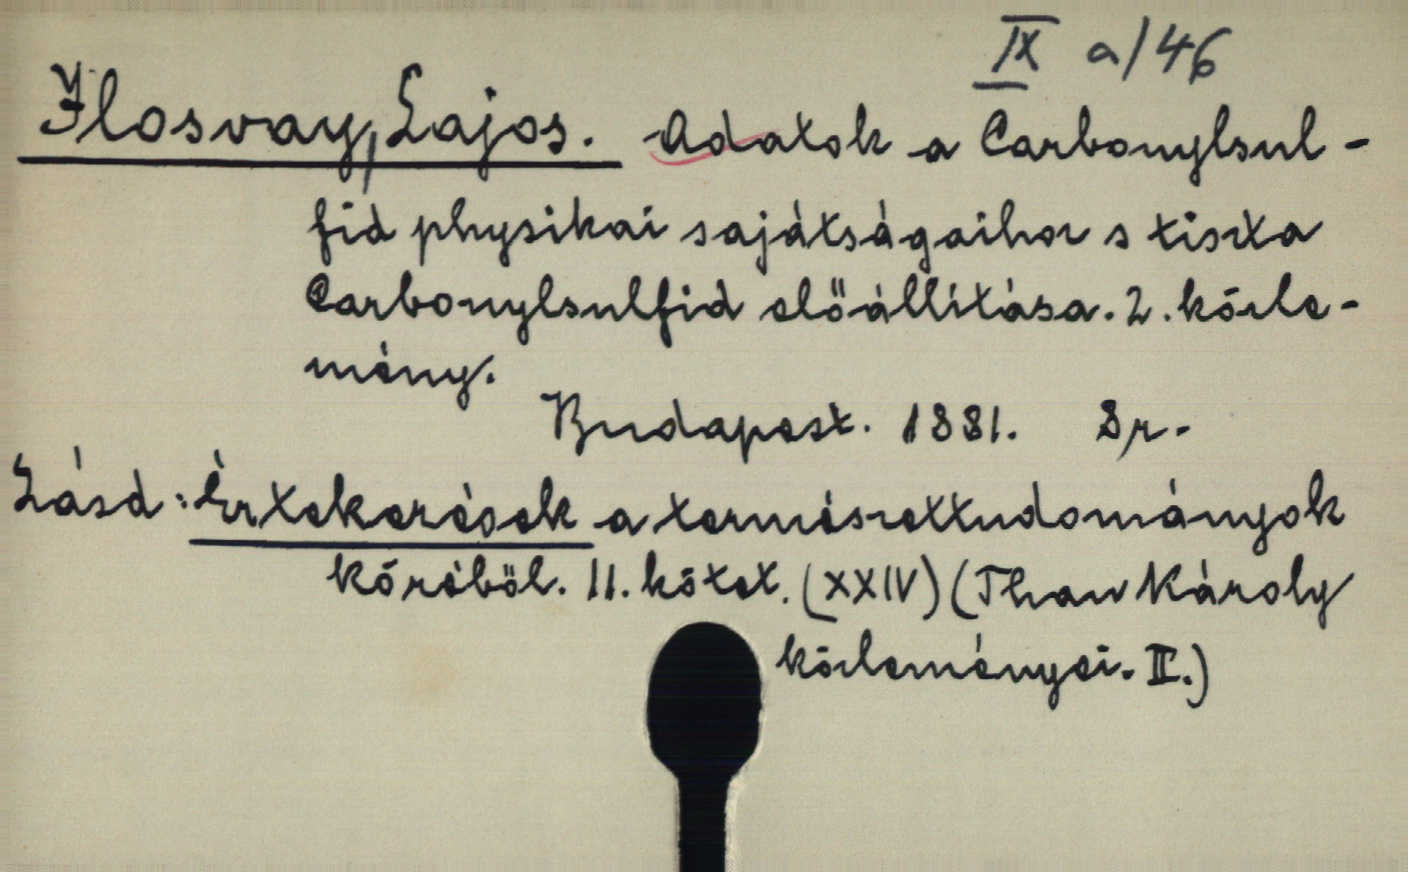 IX a/46
Ilosvay, Lajos. Adatok a Carbonylsul-
fid physikai sajátságaihoz s tiszta
Carbonylsulfid előállítása. 2. közle-
mény.
Budapest. 1881. 8r.
Lásd: Értekezések a természettudományok
köréből. 11. kötet. (XXIV) (Than Károly
közleményei. II.)